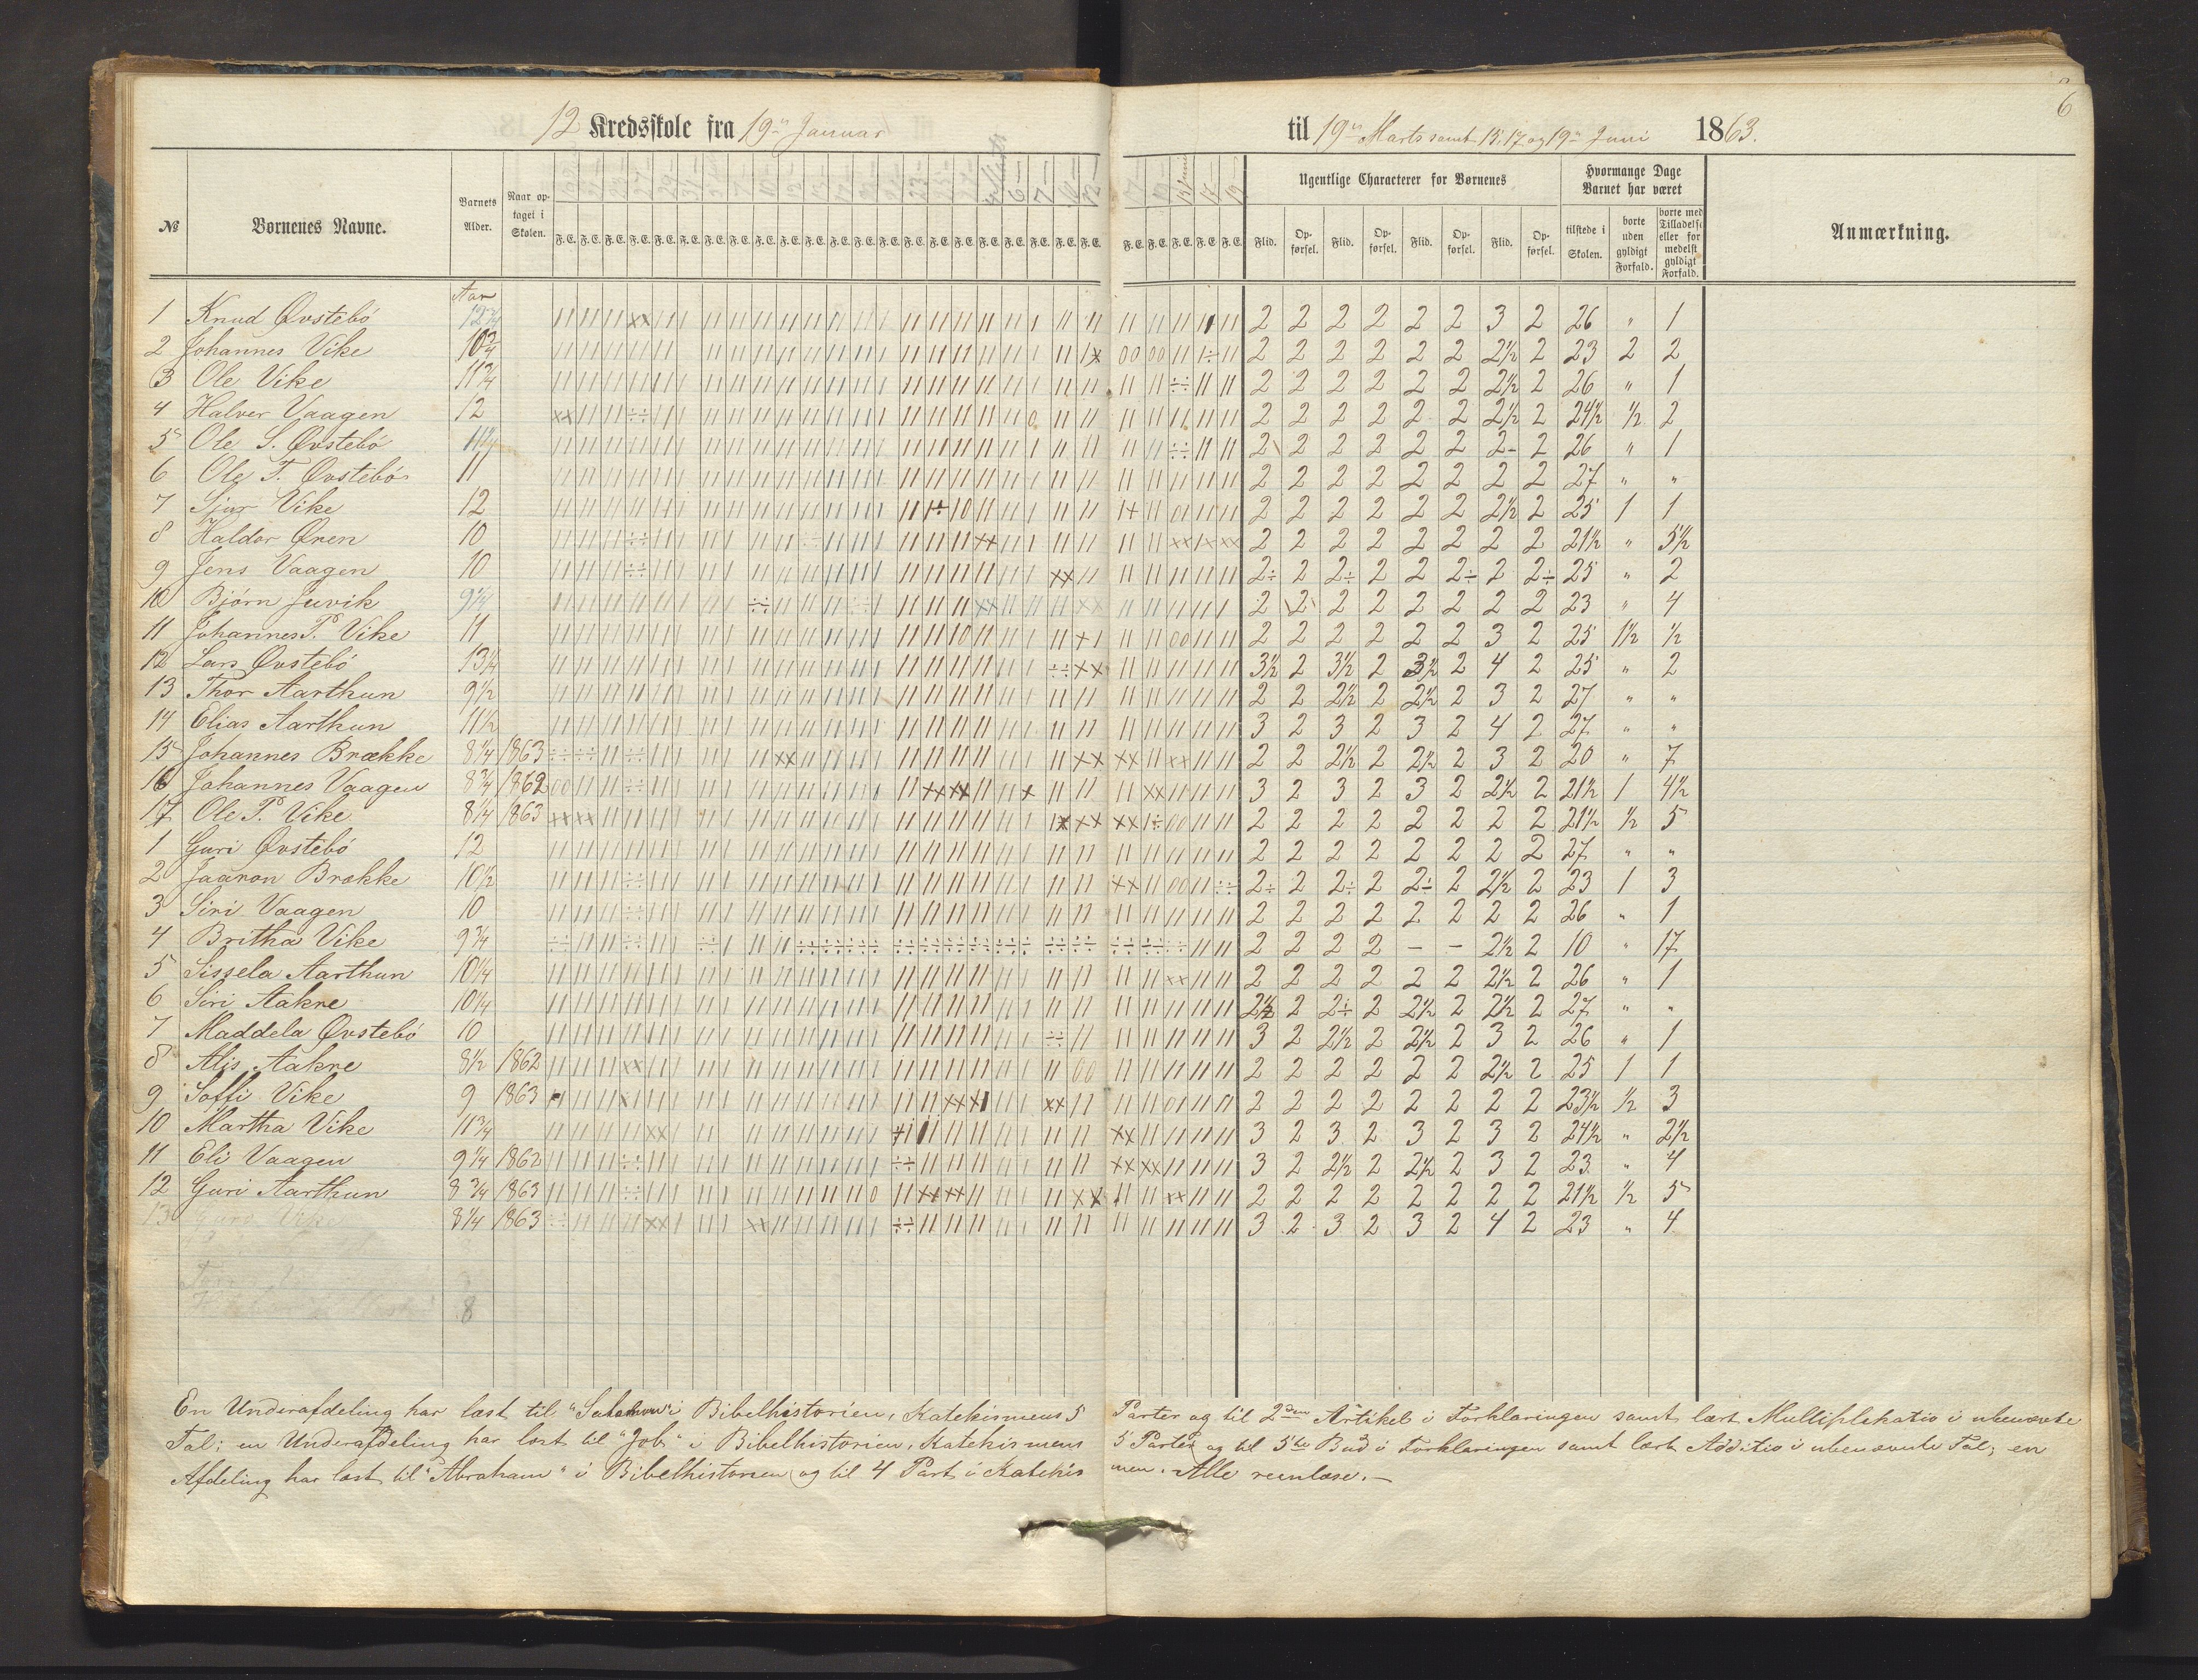 6
12 Kredsskole fra 19de Januar til 19de Marts samt 15, 17 og 19de Juni 1863.
№ Børnenes Navne. Barnets Alder. Naar optaget i Skolen. Ugentlige Characterer for Børnenes Hvormange Dage Barnet har været Anmærkning.
F. E. Flid. Opførsel. Flid. Opførsel. Flid. Opførsel. Flid. Opførsel. tilstede i Skolen. borte uden gyldigt Forfald. borte med Tilladelse eller formedelst gyldigt Forfald.
Aar
1 Knud Øvstebö 12¾ 2 2 2 2 2 2 3 2 26 " 1
2 Johannes Vike 10¾ 2 2 2 2 2 2 2½ 2 23 2 2
3 Ole Vike 11¾ 2 2 2 2 2 2 2½ 2 26 " 1
4 Halver Vaagen 12 2 2 2 2 2 2 2½ 2 24½ ½ 2
5 Ole S. Øvstebö 2 2 2 2 2 2 2- 2 26 " 1
6 Ole T. Øvstebö 11 2 2 2 2 2 2 2 2 27 " "
7 Sjur Vike 12 2 2 2 2 2 2 2½ 2 25 1 1
8 Haldor Øren 10 2 2 2 2 2 2 2 2 21½ " 5½
9 Jens Vaagen 10 2÷ 2 2÷ 2 2 2÷ 2 2÷ 25 " 2
10 Bjørn Juvik 2 2 2 2 2 2 2 2 23 " 4
11 Johannes P. Vike 11 2 2 2 2 2 2 3 2 25 1½ ½
12 Lars Øvstebö 13¼ 3½ 2 3½ 2 3½ 2 4 2 25 " 2
13 Thor Aarthun 9½ 2 2 2½ 2 2½ 2 3 2 27 " "
14 Elias Aarthun 11½ 3 2 3 2 3 2 4 2 27 " "
15 Johannes Brække 8¼ 1863 2 2 2½ 2 2½ 2 3 2 20 " 7
16 Johannes Vaagen 8¾ 1862 3 2 3 2 3 2 2½ 2 21½ 1 4½
17 Ole P. Vike 8¼ 1863 2 2 2 2 2 2 2 2 21½ ½ 5
1 Guri Øvstebö 12 2 2 2 2 2 2 2 2 27 " "
2 Jaaron Brække 10½ 2÷ 2 2÷ 2 2÷ 2 2½ 2 23 1 3
3 Siri Vaagen 10 2 2 2 2 2 2 2 2 26 " 1
4 Britha Vike 9¾ 2 2 2 2 – – 2½ 2 10 " 17
5 Sissela Aarthun 10¼ 2 2 2 2 2 2 2½ 2 26 " 1
6 Siri Aakre 10¼ 2½ 2 2÷ 2 2½ 2 2½ 2 27 " "
7 Maddela Øvstebö 10 3 2 2½ 2 2½ 2 3 2 26 " 1
8 Alis Aakre 8½ 1862 2 2 2 2 2 2 2½ 2 25 1 1
9 Soffi Vike 9 1863 2 2 2 2 2 2 2 2 23½ ½ 3
10 Martha Vike 11¾ 3 2 3 2 3 2 3 2 24½ " 2½
11 Eli Vaagen 9¼ 1862 3 2 2½ 2 2½ 2 3 2 23 " 4
12 Guri Aarthun 8¾ 1863 2 2 2 2 2 2 2 2 21½ ½ 5
13 Guri Vike 8¼ 1863 3 2 3 2 3 2 4 2 23 " 4
8
En Underafdeling har læst til "Salomon" i Bibelhistorien, Katekismens 5 Parter og til 2den Artikel i Forklaringen samt lært Multiplikatio i ubenævnte
Tal; en Underafdeling har læst til "Job" i Bibelhistorien, Katekismens 5 Parter og til 5te Bud i Forklaringen samt lært Additio i ubenævnte Tal; en
Afdeling har læst til "Abraham" i Bibelhistorien og til 4 Part i Katekismen. Alle reenlæse.–